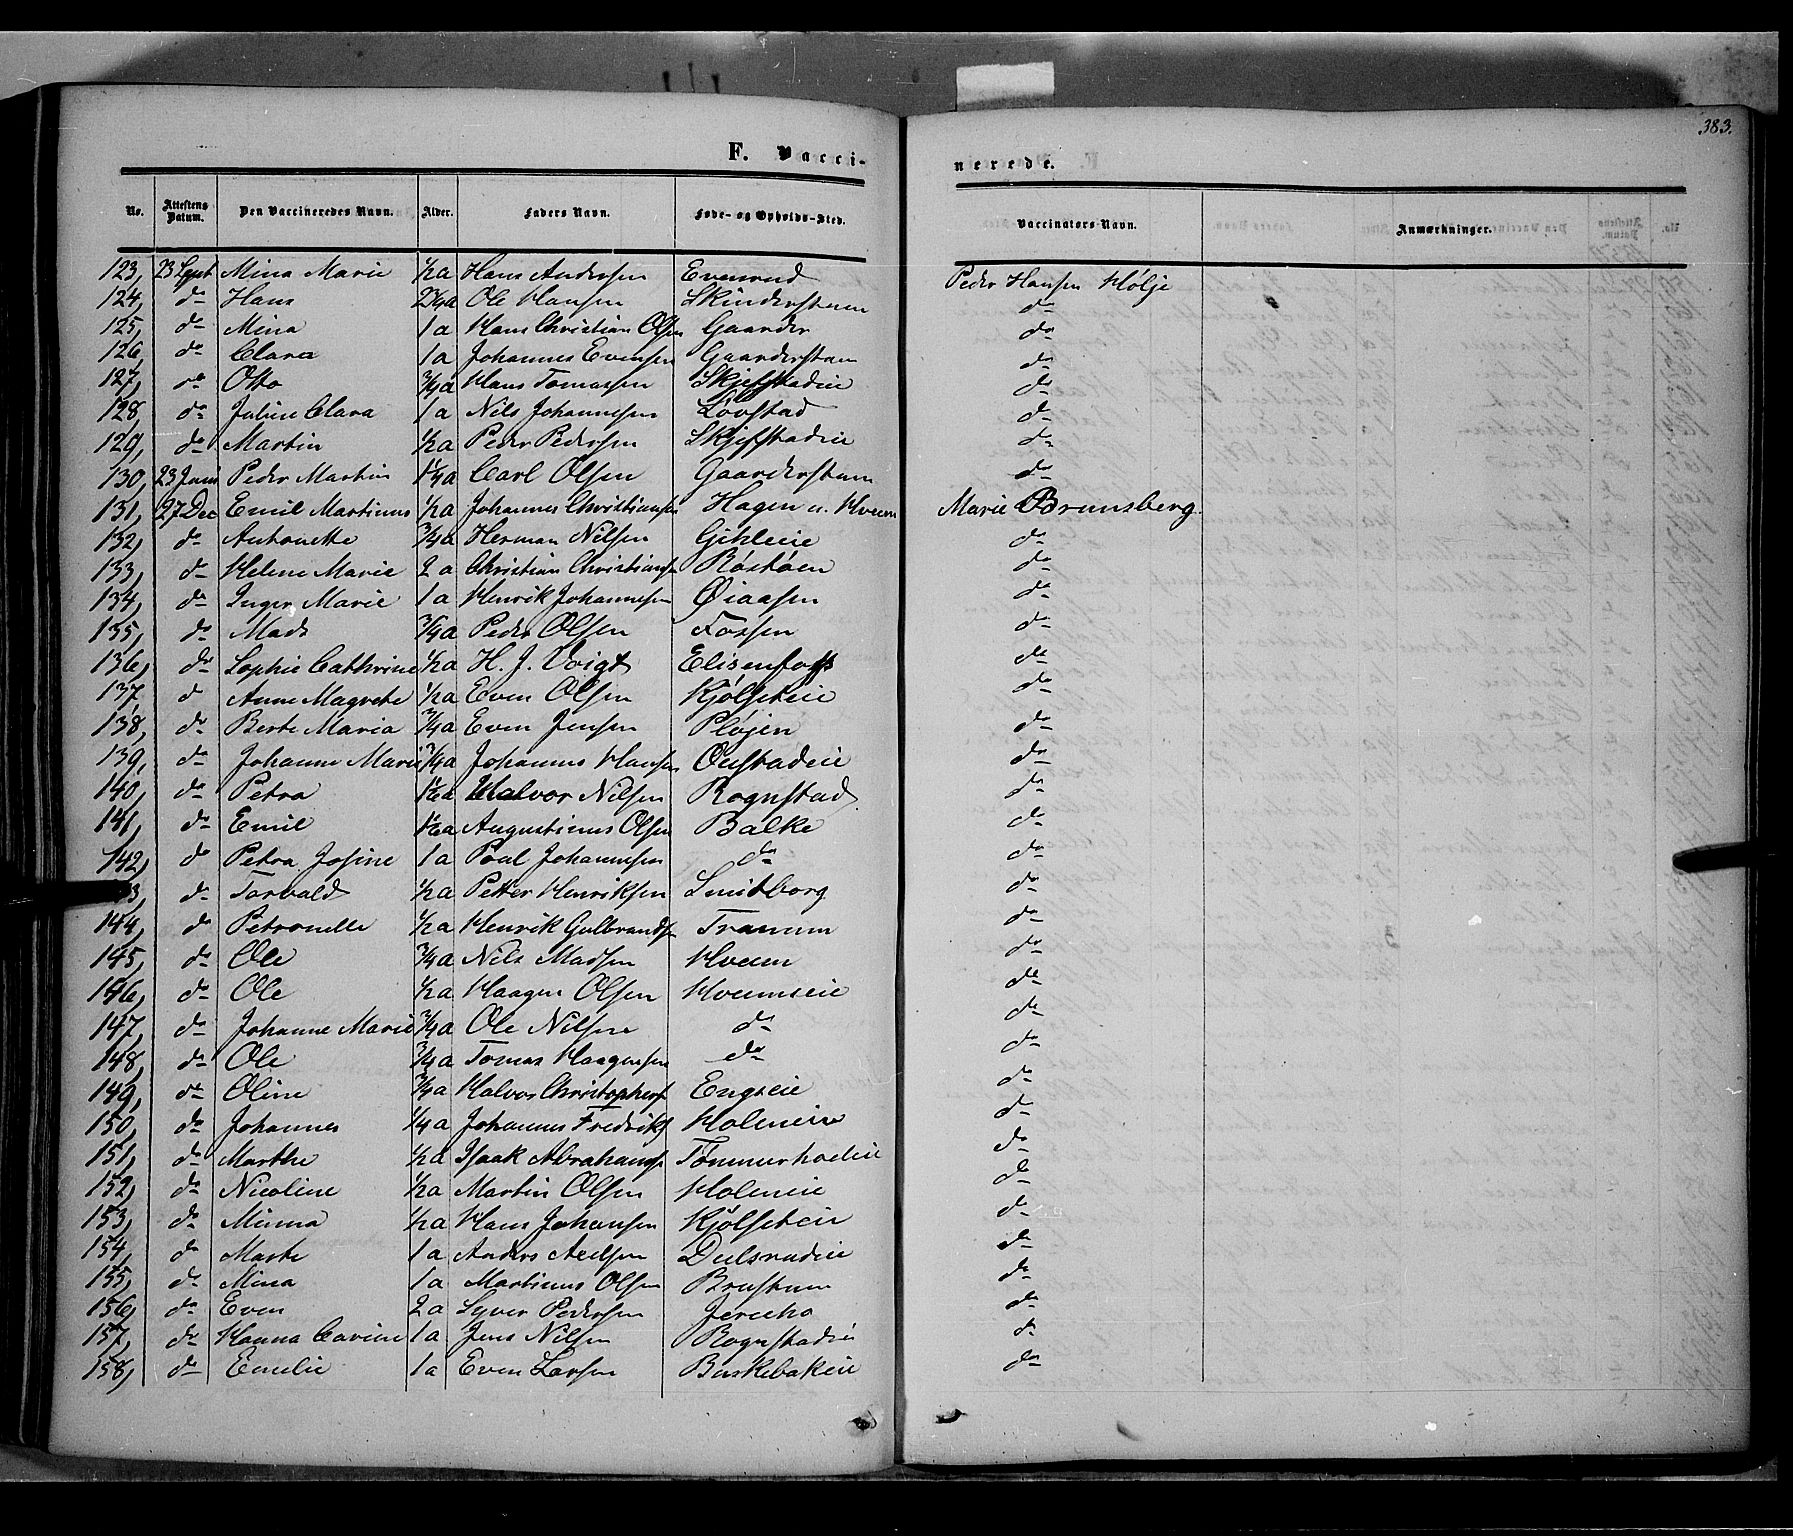 383.
F. Vacci-
nerede.
No. Attestens Datum. Den Vaccineredes Navn. Alder. Faders Navn. Føde- og Opholds-Sted. Vaccinators Navn. Anmærkninger.
123, 23 Sept Mina Marie 1/2 a Hans Andersen Evenrud Peder Hansen Hølje
124, do Hans 2 1/4 a Ole Hansen Skinderstuen do
125, do Mina 1 a Hans Christian Olsen Gaarder do
126, do Clara 1 a Johannes Evensen Gaarderstuen do
127, do Otto 3/4 a Hans Tomassen Skjefstadeie do
128, do Juline Clara 1 a Nils Johannesen Lövstad do
129, do Martin 1/2 a Peder Pedersen Skjefstadeie do
130, 23 Juni Peder Martin 1 1/4 a Carl Olsen Gaarderstuen do
131, 27 Dec Emil Martinus 1/2 a Johannes Christiansen Hagen u. Hveem Marie Brunsberg.
132, do Antonette 3/4 a Herman Nilsen Gihleie do
133, do Helene Marie 2 a Christian Christiansen Röstöen do
134, do Inger Marie 1 a Henrik Johannesen Øiaasen do
135, do Mads 3/4 a Peder Olsen Fossen do
136, do Sophie Cathrine 1/2 a H. J. Voigt Elisenfoss do
137, d Anne Magrete 1/2 a Even Olsen Kjølseteie do
138, do Berte Maria 3/4 a Even Jensen Pløjen do
139, do Johanne Marie 3/4 a Johannes Hansen Oustadeie do
140, do Petra 1 1/2 a Halvor Nilsen Rognstad do
141, do Emil 1 1/2 a Augustinus Olsen Balke do
142, do Petra Josine 1 a Poul Johannesen do do
143, do Torvald 1/2 a Petter Henriksen Smidborg do
144, do Petronelle 1/2 a Henrik Gulbrandsen Tranum do
145, do Ole 3/4 a Nils Madsen Hveem do
146, do Ole 1/2 a Haagen Olsen Hveemseie do
147, do Johanne Marie 3/4 a Ole Nilsen do do
148, do Ole 3/4 a Tomas Haagensen do do
149, do Oline 3/4 a Halvor Christophers Engseie do
150, do Johannes 1/4 a Johannes Fredriks Holmeie do
151, do Marthe 1/2 a Isaak Abrahams Tømmerholeie do
152, do Nicoline 1/2 a Martin Olsen Holmeie do
153, do Minna 1/2 a Hans Johansen Kjølseteie do
154, do Marte 1 a Anders Nilsen Dulsrudeie do
155, do Mina 1 a Martinus Olsen Brustuen do
156, do Even 2 a Syver Pedersen Jericho do
157, do Hanna Carine 1 a Jens Nilsen Rognstadeie do
158, do Emelie 1 a Even Larsen Buskebakeie do